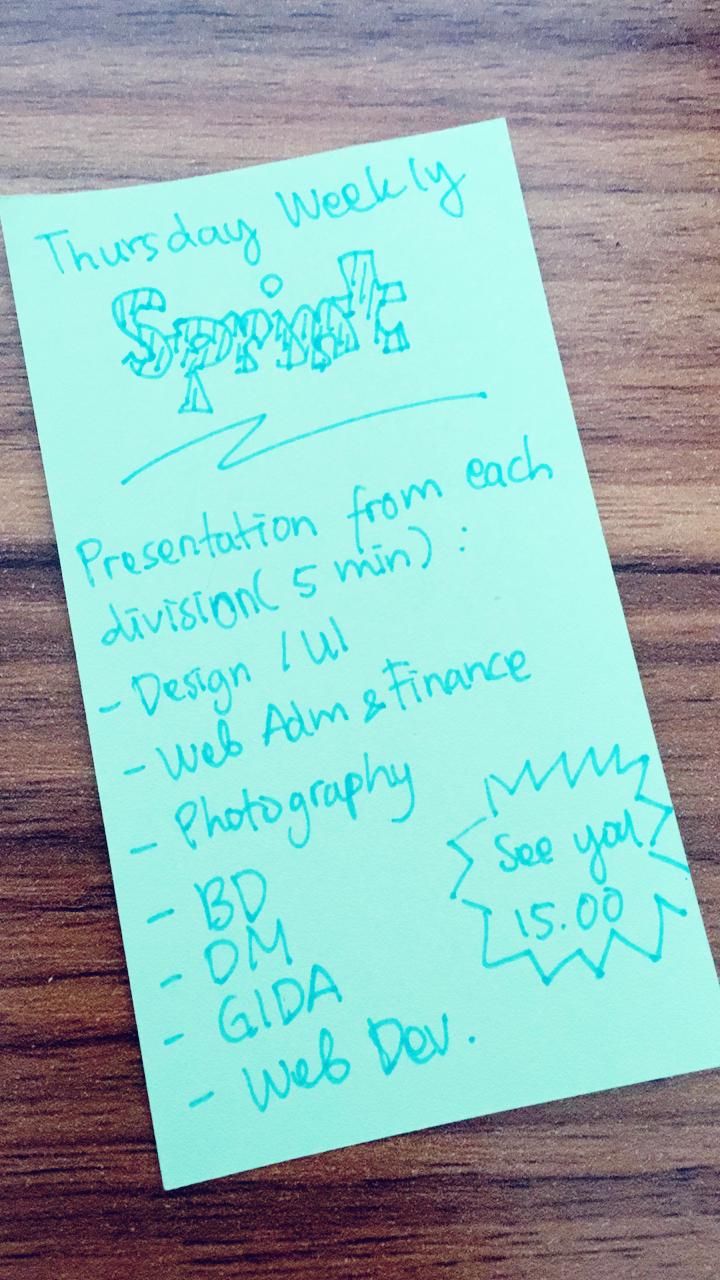 Thursday Weekly
Sprint
Presentation from each
division( 5 min) :
- Design / UI
- Web Adm & Finance
- Photography
- BD
- DM
- GIDA
- Web Dev.
See you
15.00